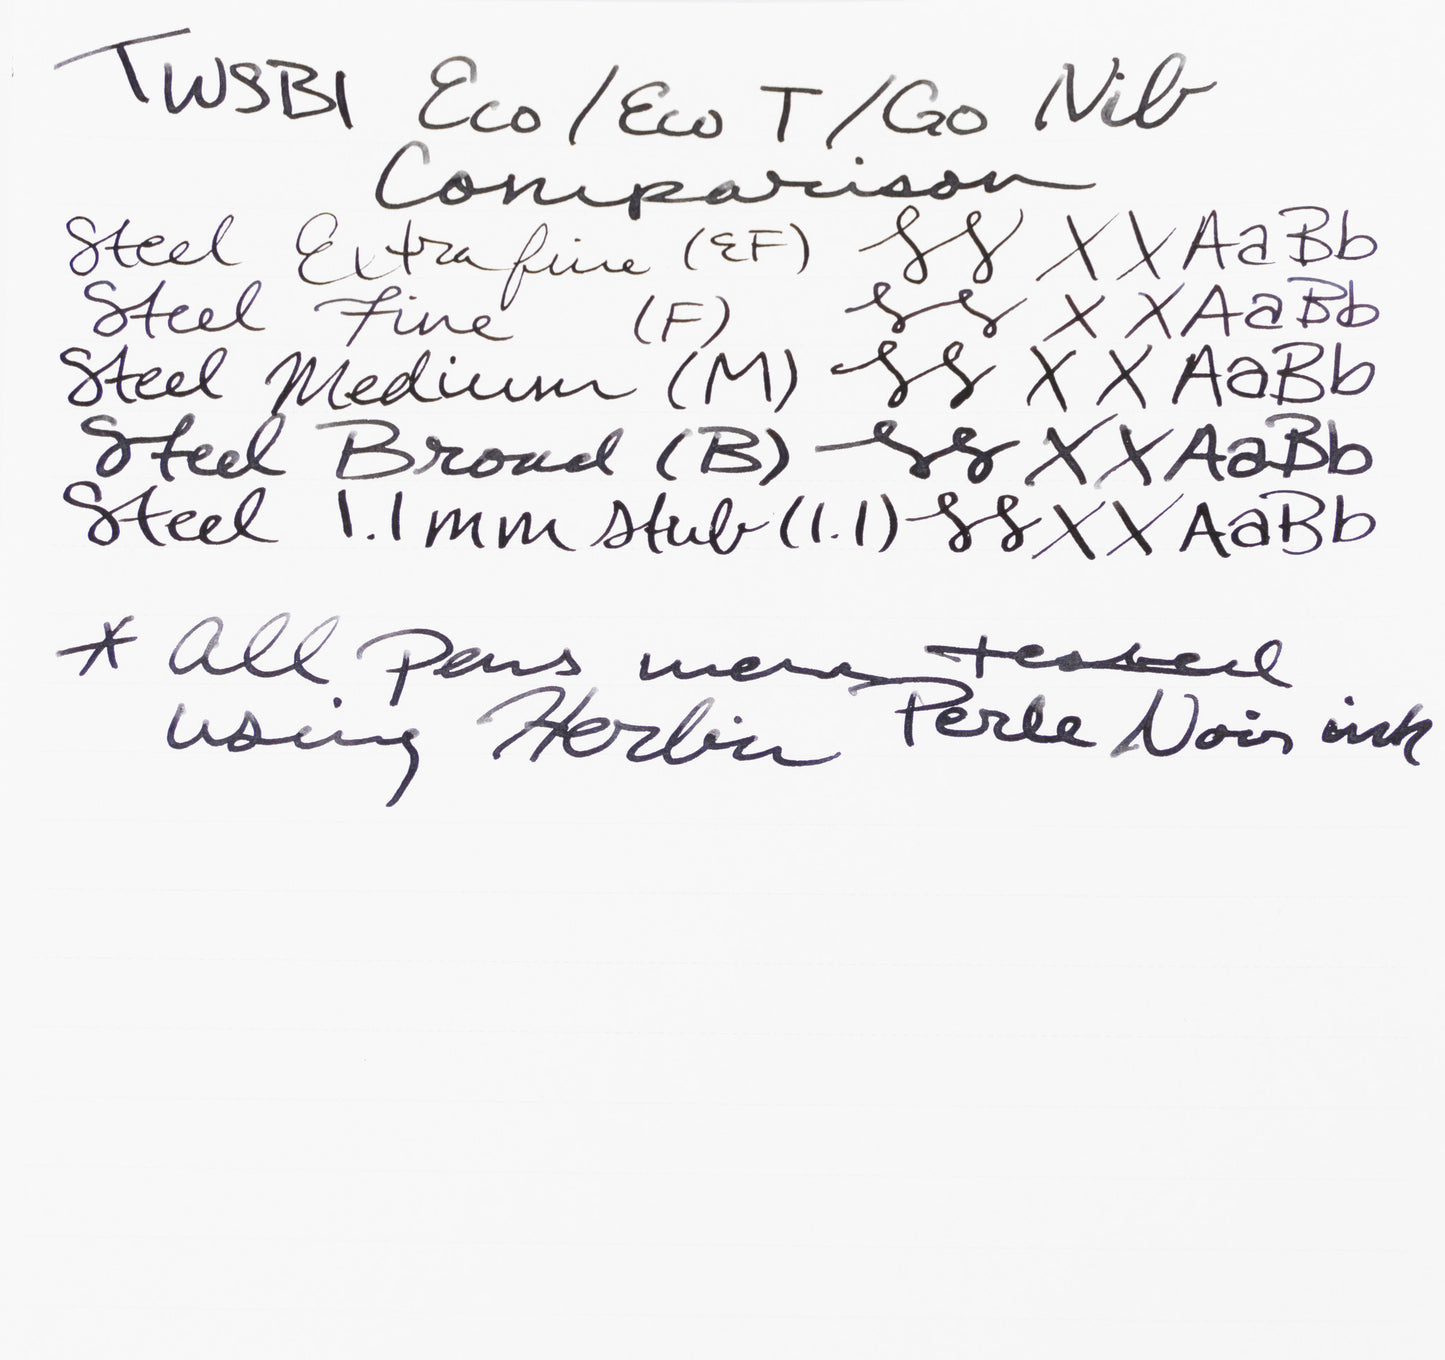 TWSBI Eco / Eco T / Go Nib
Comparison
Steel Extra fine (EF) SS X X AaBb
Steel Fine (F) SS X X AaBb
Steel Medium (M) SS X X AaBb
Steel Broad (B) SS X X AaBb
Steel 1.1 mm Stub (1.1) SS X X AaBb
* All pens were tested
using Herbin Perle Noir ink